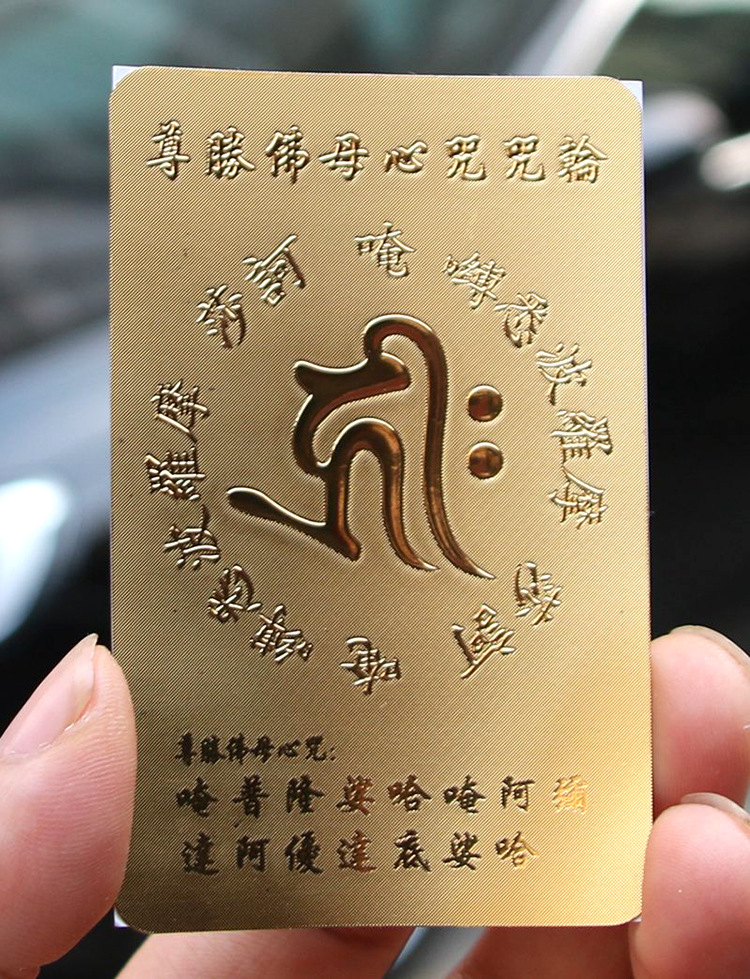 尊勝佛母心咒咒輪
唵 悉波羅摩 訶
唵 悉波羅摩 訶
尊勝佛母心咒:
唵普隆娑哈唵阿彌
達阿優達底娑哈